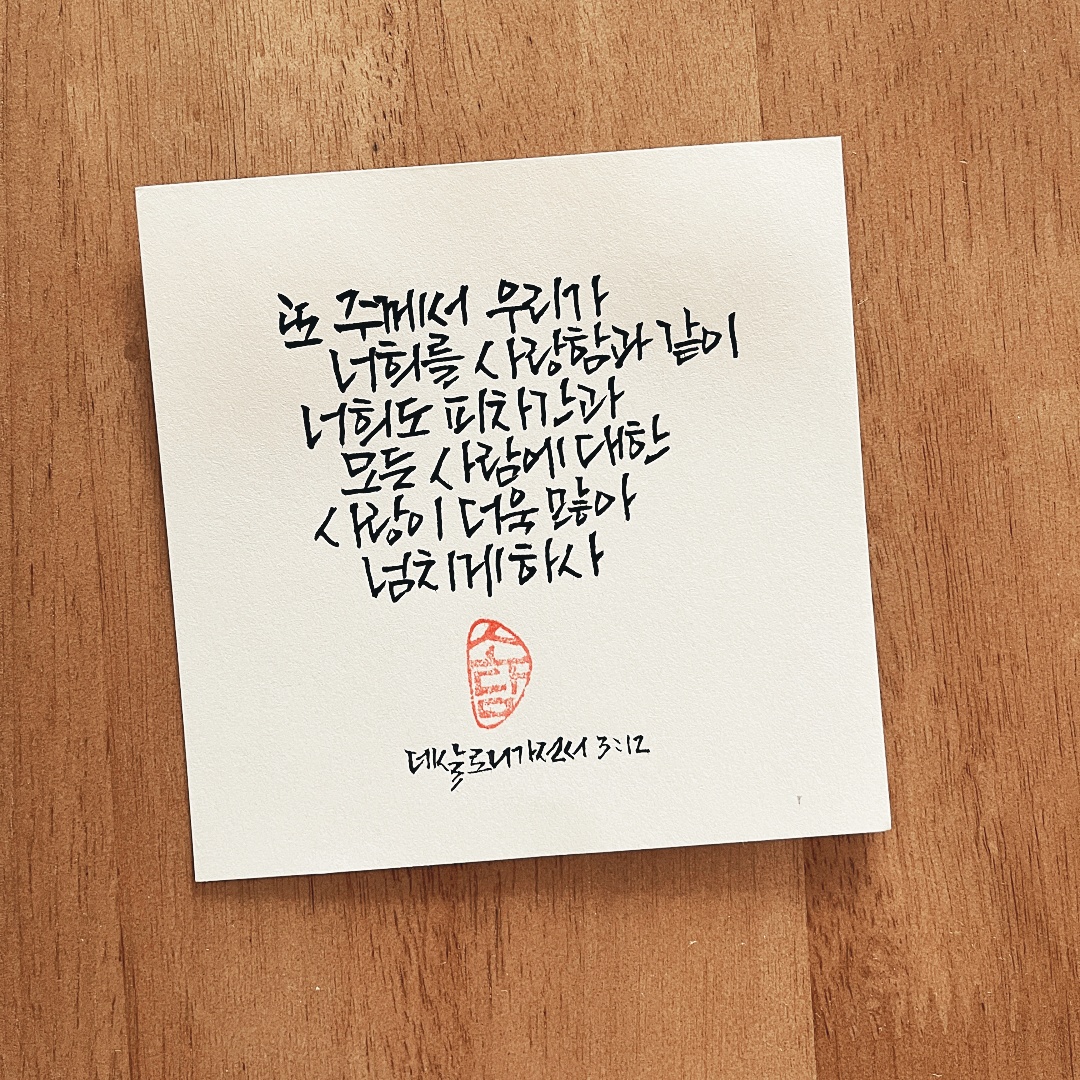 또 주께서 우리가
너희를 사랑함과 같이
너희도 피차간과
모든 사람에 대한
사랑이 더욱 많아
넘치게 하사
데살로니가전서 3:12